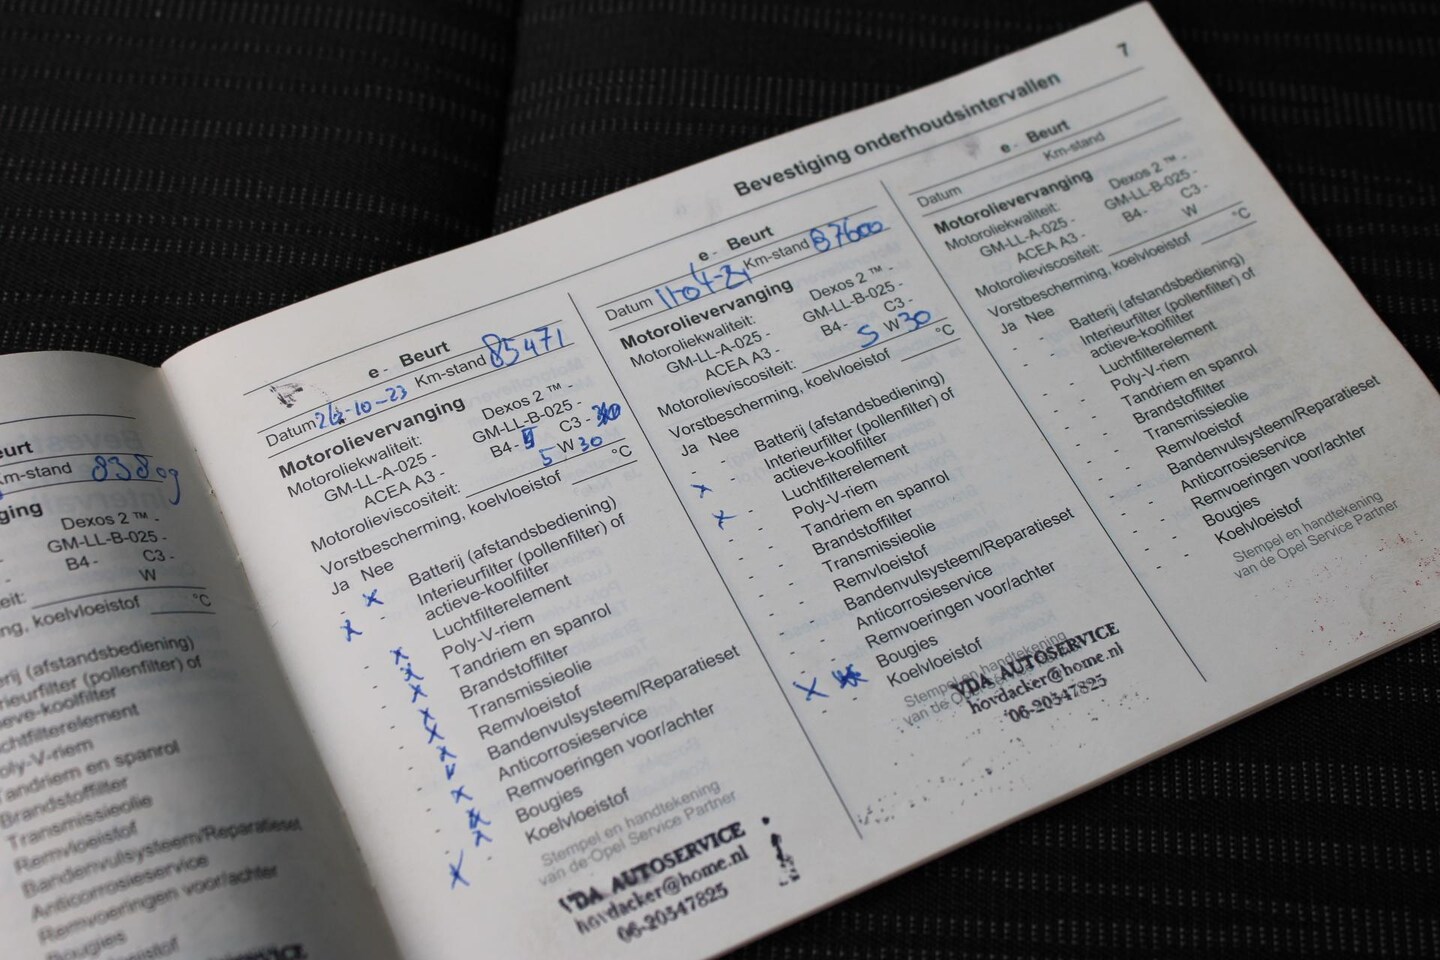 7
Bevestiging onderhoudsintervallen
eurt
Km-stand 83809
ging
Dexos 2 ™ -
GM-LL-B-025 -
B4 - C3 -
eit: W
ng, koelvloeistof °C
erij (afstandsbediening)
rieurfilter (pollenfilter) of
eve-koolfilter
chtfilterelement
oly-V-riem
andriem en spanrol
Brandstoffilter
Transmissieolie
Remvloeistof
Bandenvulsysteem/Reparatieset
Anticorrosieservice
Remvoeringen voor/achter
Bougies
Koelvloeistof
e - Beurt
Datum 26-10-23 Km-stand 85471
Motorolievervanging
Motoroliekwaliteit: Dexos 2 ™ -
GM-LL-A-025 - GM-LL-B-025 -
ACEA A3 - B4 - C3 -
Motorolieviscositeit: 5 W 30
Vorstbescherming, koelvloeistof °C
Ja Nee
- x Batterij (afstandsbediening)
x Interieurfilter (pollenfilter) of
actieve-koolfilter
- x Luchtfilterelement
- x Poly-V-riem
- x Tandriem en spanrol
- x Brandstoffilter
- x Transmissieolie
- x Remvloeistof
- x Bandenvulsysteem/Reparatieset
- x Anticorrosieservice
- x Remvoeringen voor/achter
- x Bougies
x - Koelvloeistof
Stempel en handtekening
van de Opel Service Partner
VDA AUTOSERVICE
hovdacker@home.nl
06-20347825
e - Beurt
Datum Km-stand 87600
Motorolievervanging
Motoroliekwaliteit: Dexos 2 ™ -
GM-LL-A-025 - GM-LL-B-025 -
ACEA A3 - B4 - C3 -
Motorolieviscositeit: 5 W 30
Vorstbescherming, koelvloeistof °C
Ja Nee
- - Batterij (afstandsbediening)
x - Interieurfilter (pollenfilter) of
actieve-koolfilter
x - Luchtfilterelement
- - Poly-V-riem
- - Tandriem en spanrol
- - Brandstoffilter
- - Transmissieolie
- - Remvloeistof
- - Bandenvulsysteem/Reparatieset
- - Anticorrosieservice
- - Remvoeringen voor/achter
x Bougies
- - Koelvloeistof
Stempel en handtekening
van de Opel Service Partner
VDA AUTOSERVICE
hovdacker@home.nl
06-20347825
e - Beurt
Datum Km-stand
Motorolievervanging
Motoroliekwaliteit: Dexos 2 ™ -
GM-LL-A-025 - GM-LL-B-025 -
ACEA A3 - B4 - C3 -
Motorolieviscositeit: W
Vorstbescherming, koelvloeistof °C
Ja Nee
- - Batterij (afstandsbediening)
- - Interieurfilter (pollenfilter) of
actieve-koolfilter
- - Luchtfilterelement
- - Poly-V-riem
- - Tandriem en spanrol
- - Brandstoffilter
- - Transmissieolie
- - Remvloeistof
- - Bandenvulsysteem/Reparatieset
- - Anticorrosieservice
- - Remvoeringen voor/achter
- - Bougies
- - Koelvloeistof
Stempel en handtekening
van de Opel Service Partner